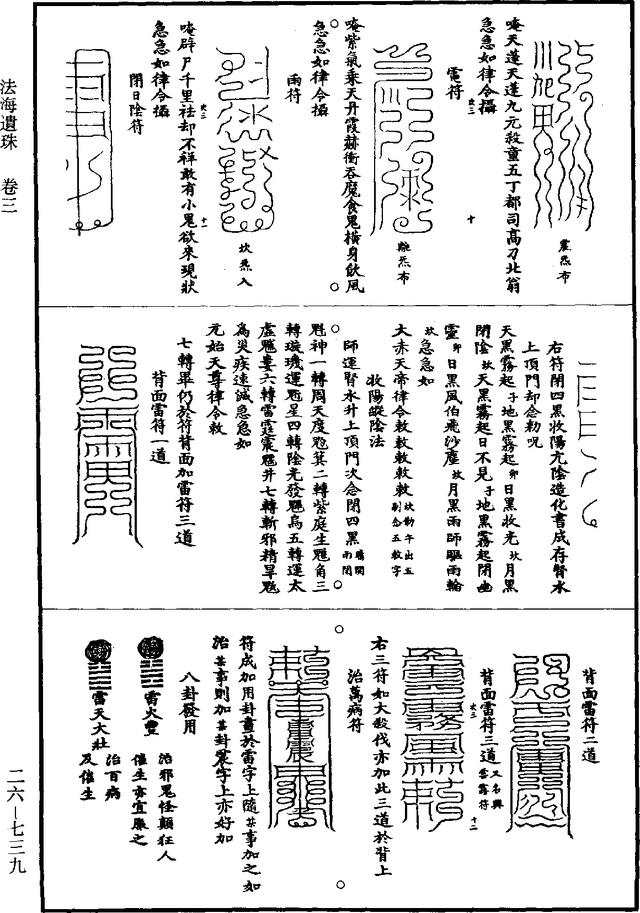 法海遺珠 卷三
二六—七三九
震炁布
唵天蓬天蓬九元殺童五丁都司高刀北翁
急急如律令攝
電符
十
離炁布
唵紫氣乘天丹霞赫衝吞魔食鬼橫身飲風
急急如律令攝
雨符
坎炁入
唵辟尸千里祛却不祥敢有小鬼欲來現狀
急急如律令攝
閉日陰符
十一
右符閉四黑收陽亢陰造化書成存腎水
上頂門却念勑呪
天黑霧起子地黑霧起卯日黑收光坎月黑
閉陰坎天黑霧起日不見子地黑霧起閉幽
靈卯日黑風伯飛沙塵坎月黑雨師驅雨輪
坎急急如
太赤天帝律令敕敕敕敕敕坎勑午出五
剔念五敕字
收陽縱陰法
師運腎水升上頂門次念閉四黑
魁神一轉周天度魁箕二轉紫庭生魁角三
轉璇璣運魁星四轉陰光發魁烏五轉運太
虛魁婁六轉雷霆震魁井七轉斬邪精畢魁
為災疾速誠急急如
元始天尊律令敕
七轉畢仍於符背面加雷符三道
背面雷符一道
背面雷符二道
背面雷符三道又名興
雲霧符
十二
右三符如大殺伐亦加此三道於背上
治萬病符
符成加用卦畫於雷字上隨某事加之如
治某事則加某卦震字上亦好加
八卦發用
雷火豐
治邪鬼怪顛狂人
催生亦宜厭之
雷天大壯
治百病
及催生